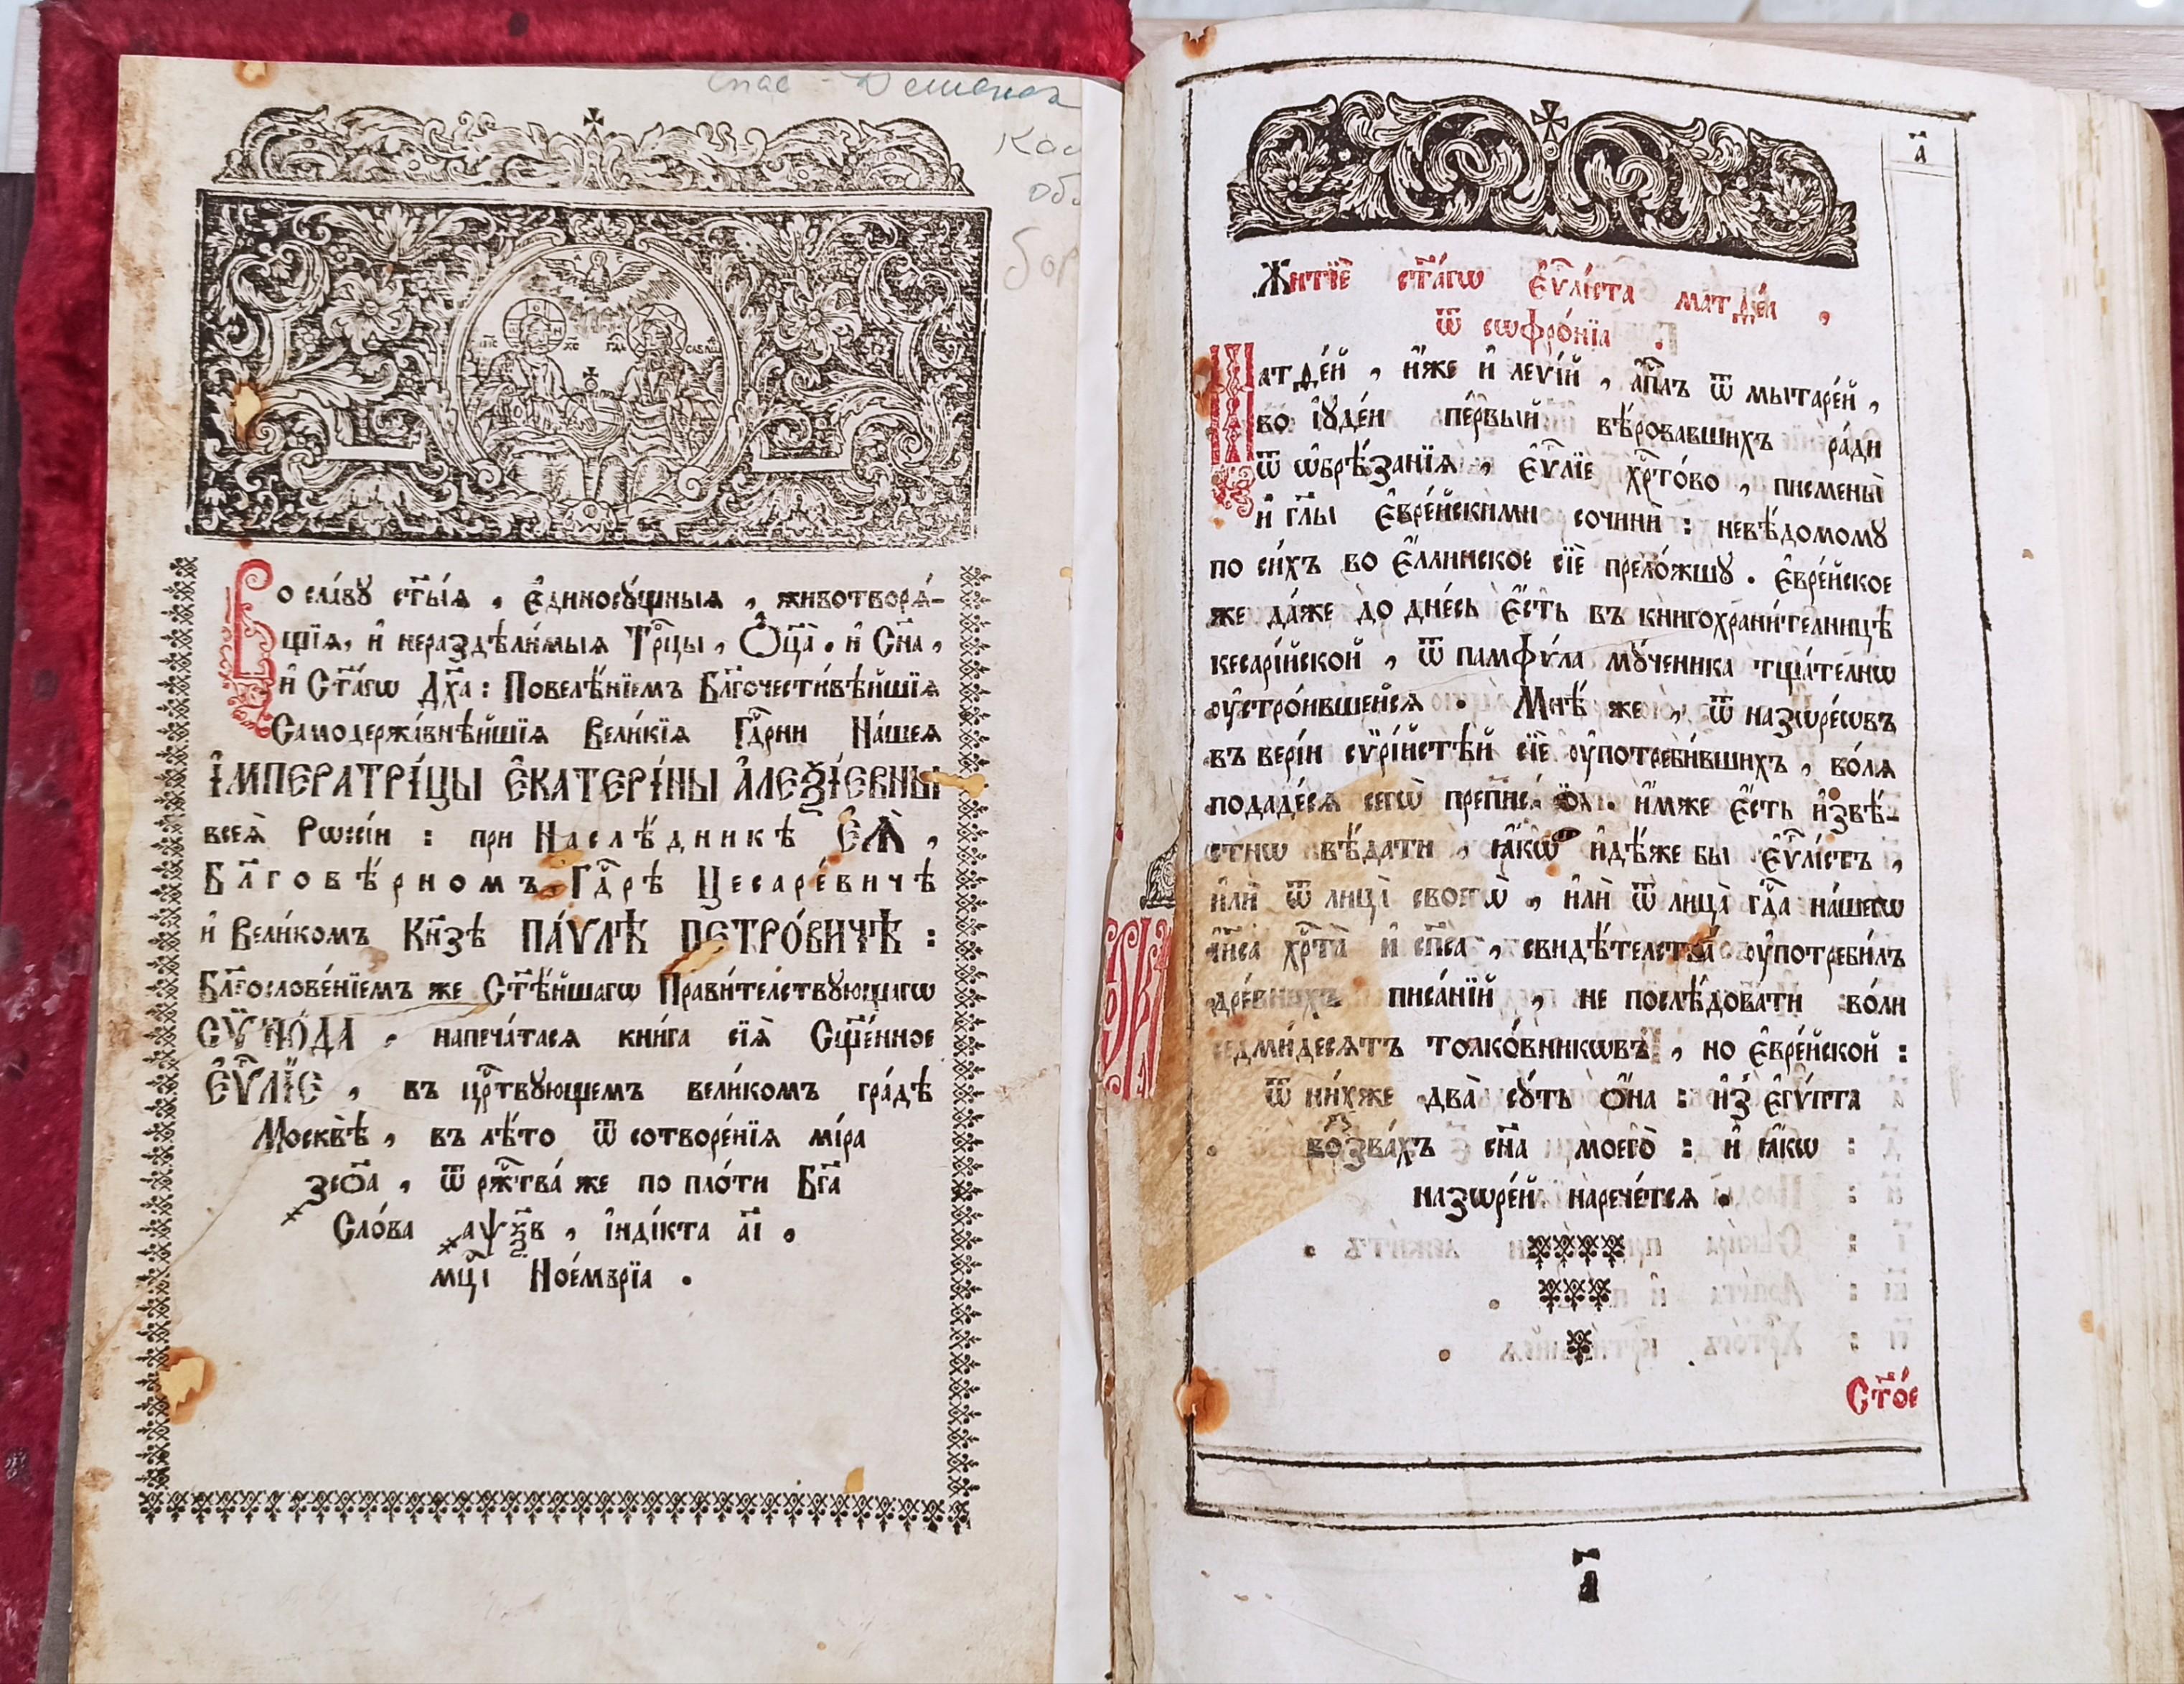 Спас - Деменск
Во сла́вꙋ ст҃ы́ѧ , Є҆диносꙋ́щныѧ , животворѧ́-
щїѧ, и҆ нераздѣли́мыѧ Трⷪ҇цы , Ѻ҆ц҃а̀ . и҆ Сн҃а ,
и҆ Ст҃а́гѡ Дх҃а : Повелѣ́нїемъ Бл҃гочести́вѣйшїѧ
Самодержа́внѣйшїѧ Вели́кїѧ Гдⷭ҇рни На́шеѧ
І҆МПЕРАТРІ́ЦЫ Є҆КАТЕРІ́НЫ А҆ЛЕѮІ́ЕВНЫ
всеѧ̀ Рѡссі́и : при Наслѣ́дникѣ Є҆Ѧ̀ ,
Бл҃говѣ́рномъ Гдⷭ҇рѣ Цесаре́вичѣ
и҆ Вели́комъ Кн҃зѣ ПА́ѴЛѢ ПЕТРО́ВИЧѢ :
Бл҃гослове́нїемъ же Ст҃ѣ́йшагѡ Прави́телствꙋющагѡ
СѴ҆НО́ДА , напеча́тасѧ кни́га сїѧ̀ Сщ҃е́нное
Є҆Ѵⷢ҇ЛЇЕ , въ црⷭ҇твꙋющемъ вели́комъ гра́дѣ
Москвѣ̀ , въ лѣ́то ѿ сотворе́нїѧ мі́ра
҂зсѻ҃а , ѿ ржⷭ҇тва́ же по пло́ти Бг҃а
Сло́ва ҂аѱѯ҃в , і҆ндї́кта а҃і ,
мцⷭ҇і Ное́мърїа .
а҃
Житїѐ ст҃а́гѡ Є҆ѵⷢ҇лі́ста матѳе́а ,
ѿ сѡфро́нїа .
Матѳе́й , и҆́же и҆ леѵі́й , а҆пⷭ҇лъ ѿ мытаре́й ,
во і҆ꙋде́и пе́рвый вѣ́ровавшихъ ра́ди
ѿ ѡ҆брѣ́занїѧ , Є҆ѵⷢ҇лїе хрⷭ҇то́во , писмены̀
и҆ гл҃ы Є҆вре́йскими сочинѝ : невѣ́домомꙋ
по си́хъ во Є҆́ллинское сїѐ прело́жшꙋ . Є҆вре́йское
же да́же до дне́сь Є҆́сть въ книгохрани́телницѣ
кесарі́йской , ѿ памфѵ́ла мꙋ́ченика тща́телнѡ
ᲂу҆стро́ившейсѧ . Мнѣ́ же , ѿ назѡре́ѡвъ
въ вері́и сѷрі́йстѣй сїѐ ᲂу҆потреби́вшихъ , во́лѧ
подаде́сѧ сегѡ̀ и҆́мже Є҆́сть и҆звѣ́-
стнѡ вѣ́дати , ꙗ҆́кѡ и҆дѣ́же бы Є҆ѵⷢ҇лі́стъ ,
и҆лѝ ѿ лица̀ своегѡ̀ , и҆лѝ ѿ лица̀ гдⷭ҇а на́шегѡ
і҆и҃са хрⷭ҇та̀ и҆ сп҃са , свидѣ́телства ᲂу҆потреби́лъ
дре́внихъ писа́нїй , не послѣ́довати во́ли
седми́десѧтъ толко́вникѡвъ , но Є҆вре́йской :
ѿ ни́хже два̀ сꙋ́ть ѻ҆́на : и҆з̾ Є҆гѵ́пта
возва́хъ сн҃а моего̀ : и҆ ꙗ҆́кѡ
назѡре́й нарече́тсѧ .
Ст҃о́е
а҃